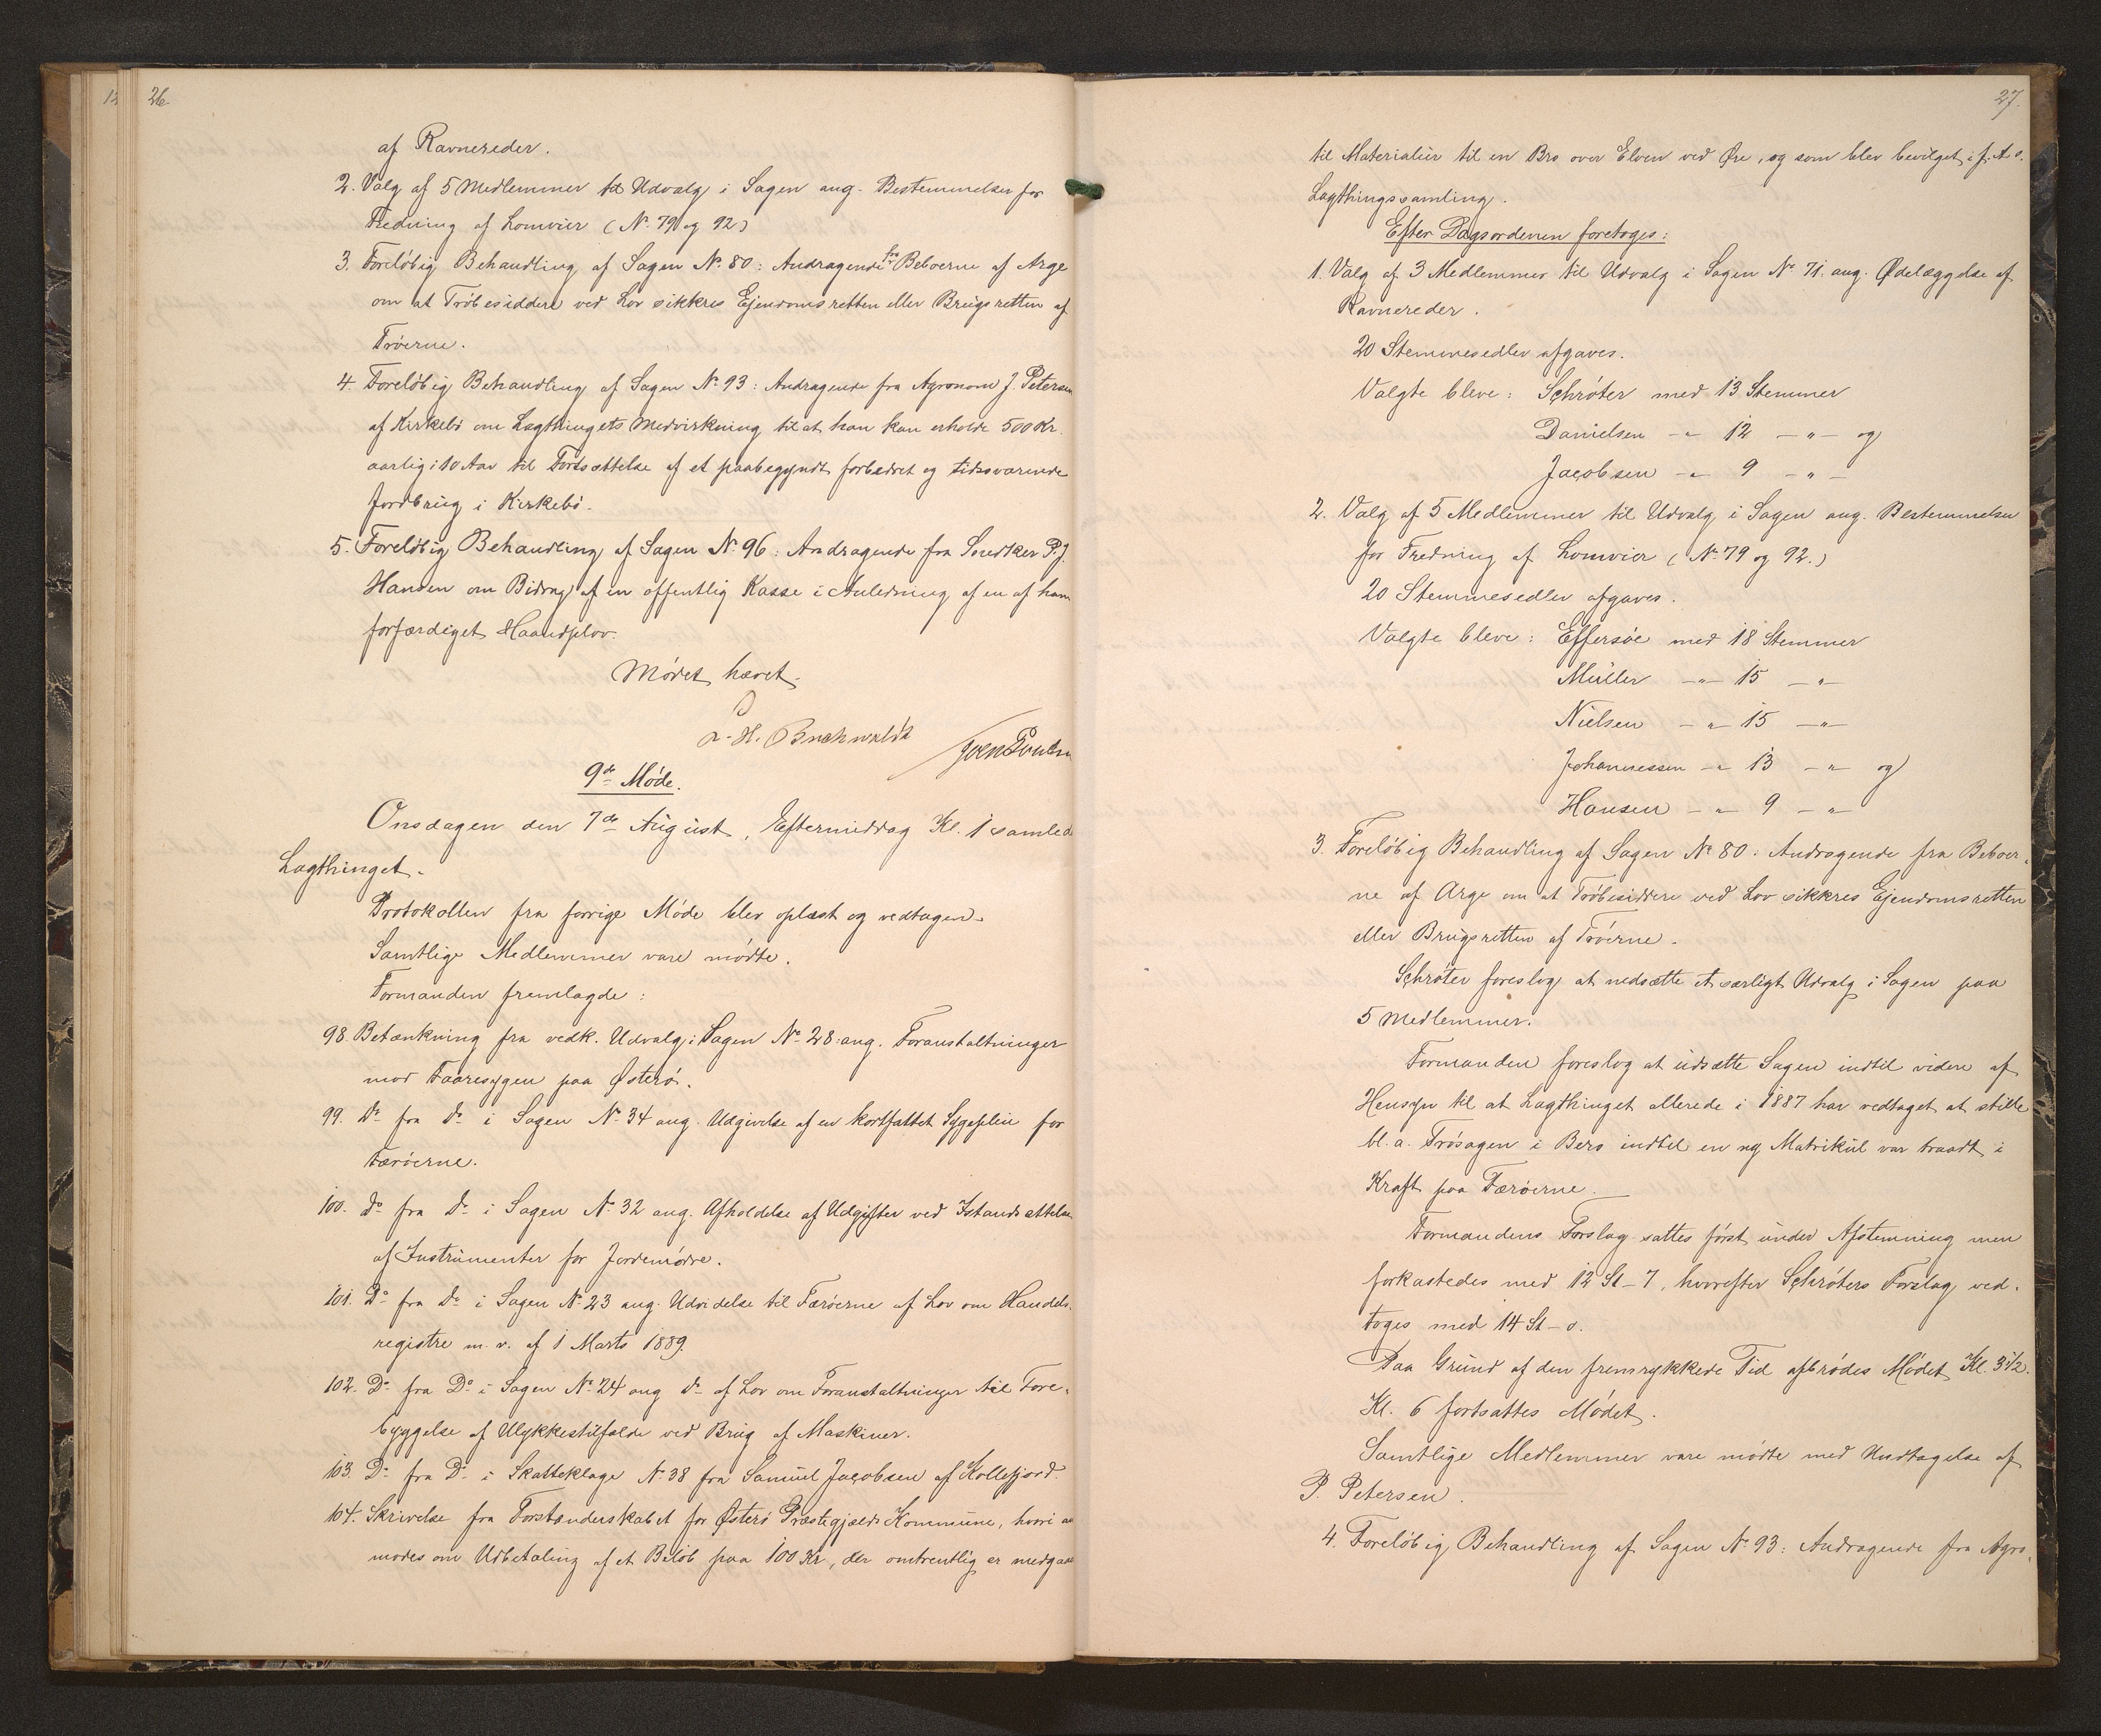 26
af Ravnereder.
2. Valg af 5 Medlemmer til Udvalg i Sagen ang. Bestemmelser for
Fredning af Lomvier (N. 79 og 92)
3. Foreløbig Behandling af Sagen N. 80: Andragende fra Beboerne af Arge
om at Tröbesiddere ved Lov sikkres Ejendomsretten eller Brugsretten af
Tröerne.
4. Foreløbig Behandling af Sagen N. 93: Andragende fra Agronom J. Petersen
af Kirkebö om Lagthingets Medvirkning til at han kan erholde 500 Kr.
aarlig i 10 Aar til Fortsættelse af et paabegyndt forbedret og tidssvarende
Jordbrug i Kirkebö.
5. Foreløbig Behandling af Sagen N. 96: Andragende fra Snedker P. J.
Hansen om Bidrag af en offentlig Kasse i Anledning af en af ham
forfærdiget Haandplov.
Mödet hævet.
L. H. Buchwaldt
Joen Poulsen
9de Möde.
Onsdagen den 7de August, Eftermiddag Kl. 1 samledes
Lagthinget.
Protokollen fra forrige Möde blev oplæst og vedtagen.
Samtlige Medlemmer vare mödte.
Formanden fremlagde:
98. Betænkning fra vedk. Udvalg i Sagen No 28: ang. Foranstaltninger
mod Faaresygen paa Österö.
99. Do fra do i Sagen N. 34 ang. Udgivelse af en kortfattet Sygepleie for
Færöerne.
100. do fra do i Sagen N. 32 ang. Afholdelse af Udgifter ved Istandsættelse
af Instrumenter for Jordemödre.
101. Do fra do i Sagen N. 23 ang. Udvidelse til Færöerne af Lov om Handels-
registre m. v. af 1 Marts 1889.
102. Do fra Do i Sagen No 24 ang do af Lov om Foranstaltninger til Fore-
byggelse af Ulykkestilfælde ved Brug af Maskiner.
103. Do fra Do i Skatteklage N. 38 fra Samuel Jacobsen af Kollefjord.
104. Skrivelse fra Forstanderskabet for Österö Præstegjælds Kommune, hvori an
modes om Udbetaling af et Belöb paa 100 Kr, der omtrentlig er medgaaet
27.
til Materialier til en Bro over Elven ved Öre, og som blev bevilget i f. A s.
Lagthingssamling.
Efter Dagsordenen foretoges:
1. Valg af 3 Medlemmer til Udvalg i Sagen No 71. ang. Ödelæggelse af
Ravnereder.
20 Stemmesedler afgaves.
Valgte bleve: Schröter med 13 Stemmer
Danielsen - " - 12 - " - og
Jacobsen - " - 9 - " -
2. Valg af 5 Medlemmer til Udvalg i Sagen ang. Bestemmelser
for Fredning af Lomvier (No 79 og 92.)
20 Stemmesedler afgaves.
Valgte bleve: Effersöe med 18 Stemmer
Müller - " - 15 - " -
Nielsen - " - 15 - " -
Johannessen - " - 13 - " - og
Hansen - " - 9 - " -
3. Foreløbig Behandling af Sagen No 80: Andragende fra Beboer-
ne af Arge om at Tröbesiddere ved Lov sikkres Ejendomsretten
eller Brugsretten af Tröerne.
Schröter foreslog at nedsætte et særligt Udvalg i Sagen paa
5 Medlemmer.
Formanden foreslog at udsætte Sagen indtil videre af
Hensyn til at Lagthinget allerede i 1887 har vedtaget at stille
bl. a. Trösagen i Bero indtil en ny Matrikul var traadt i
Kraft paa Færöerne.
Formandens Forslag sattes först under Afstemning men
forkastedes med 12 St - 7, hvorefter Schröters Forslag ved-
toges med 14 St - 0.
Paa Grund af den fremrykkede Tid afbrödes Mödet Kl. 3 1/2.
Kl. 6 fortsattes Mödet.
Samtlige Medlemmer vare mödte med Undtagelse af
P. Petersen.
4. Foreløbig Behandling af Sagen No 93: Andragende fra Agro-